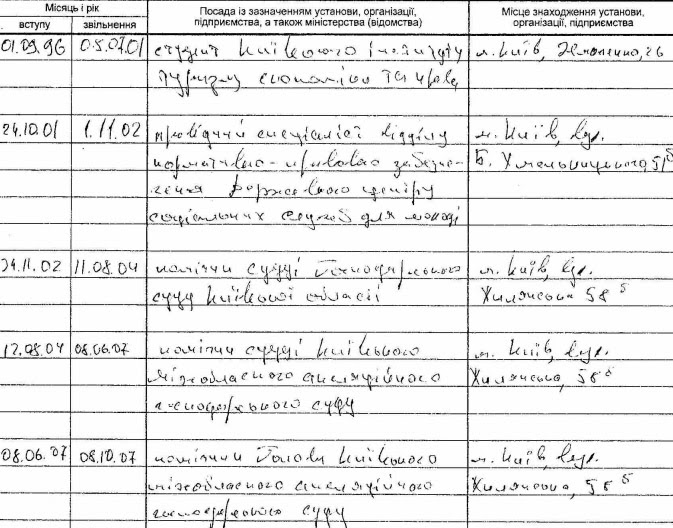 Місяць і рік
вступу звільнення
Посада із зазначенням установи, організації,
підприємства, а також міністерства (відомства)
Місце знаходження установи,
організації, підприємства
01.09.96 05.07.01 студент Київського інституту м. Київ,
туризму економіки та права
24.10.01 1.11.02 провідний спеціаліст відділу м. Київ, вул.
нормативно-правового забезпе- Б. Хмельницького, 51б
чення Державного центру
соціальних служб для молоді
04.11.02 11.08.04 помічник судді Господарського м. Київ, вул.
суду Київської області Жилянська 58 б
12.08.04 08.06.07 помічник судді Київського м. Київ, вул.
міжобласного апеляційного Жилянська, 58 б
господарського суду
08.06.07 08.10.07 помічник Голови Київського м. Київ, вул.
міжобласного апеляційного Жилянська, 58 б
господарського суду